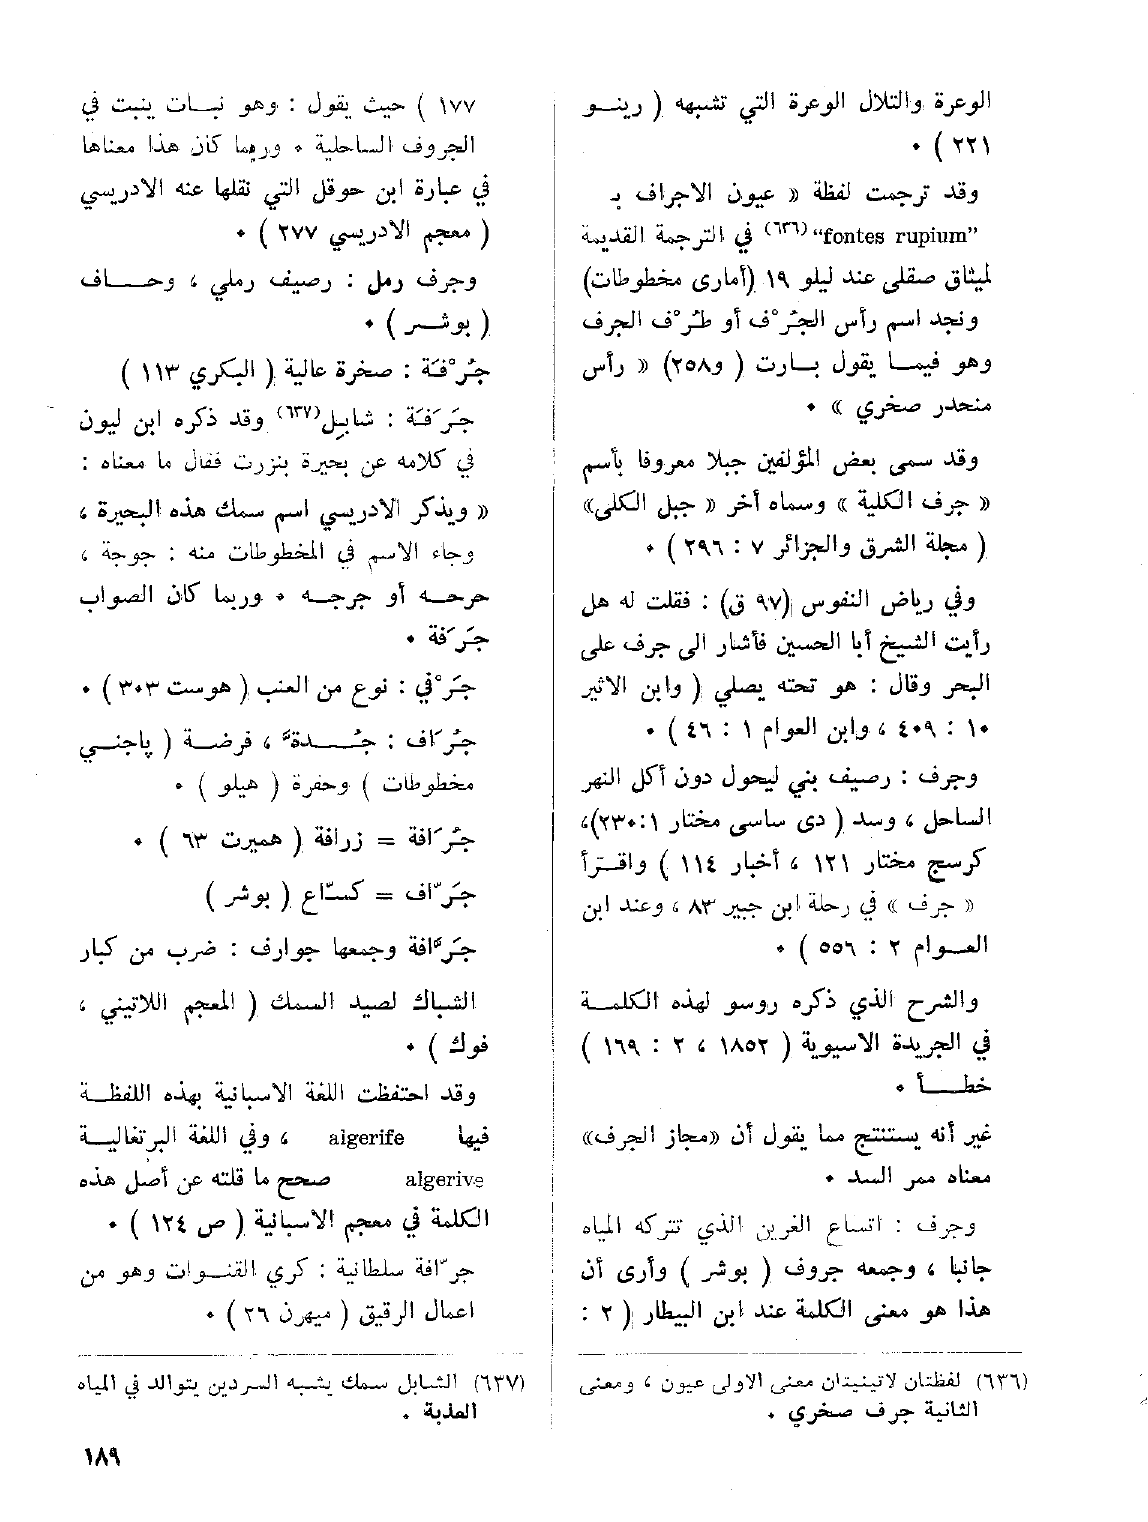 الوعرة والتلال الوعرة التي تشبهه ( رينو
٢٢١ ) ٠
وقد ترجمت لفظة « عيون الاجراف بـ
“fontes rupium”(٦٣٦) في الترجمة القديمة
لميثاق صقلي عند ليلو ١٩ (أمارى مخطوطات)
ونجد اسم رأس الجُرْف أو طَرْف الجرف
وهو فيما يقول بارت ( و٢٥٨) « رأس
منحدر صخري » ٠
وقد سمى بعض المؤلفين جبلا معروفا بأسم
« جرف الكلية » وسماه أخر « جبل الكلى»
( مجلة الشرق والجزائر ٧ : ٢٩٦ ) ٠
وفي رياض النفوس (٩٧ ق) : فقلت له هل
رأيت الشيخ أبا الحسين فأشار الى جرف على
البحر وقال : هو تحته يصلي ( وابن الاثير
١٠ : ٤٠٩ ، وابن العوام ١ : ٤٦ ) ٠
وجرف : رصيف بني ليحول دون أكل النهر
الساحل ، وسد ( دى ساسى مختار ١ :٢٣٠)،
كرسج مختار ١٢١ ، أخبار ١١٤ ) واقرأ
« جرف » في رحلة ابن جبير ٨٣ ، وعند ابن
العوام ٢ : ٥٥٦ ) ٠
والشرح الذي ذكره روسو لهذه الكلمة
في الجريدة الاسيوية ( ١٨٥٢ ، ٢ : ١٦٩ )
خطأ ٠
غير أنه يستنتج مما يقول أن «مجاز الجرف»
معناه ممر السد ٠
وجرف : اتساع الغرين الذي تتركه المياه
جانبا ، وجمعه جروف ( بوشر ) وأرى أن
هذا هو معنى الكلمة عند ابن البيطار ( ٢ :
(٦٣٦) لفظتان لاتينيتان معنى الاولى عيون ، ومعنى
الثانية جرف صخري ٠
١٧٧ ) حيث يقول : وهو نبات ينبت في
الجروف الساحلية ٠ وربما كان هذا معناها
في عبارة ابن حوقل التي نقلها عنه الادريسي
( معجم الادريسي ٢٧٧ ) ٠
وجرف رمل : رصيف رملي ، وحاف
( بوشر ) ٠
جُرْفَة : صخرة عالية ( البكري ١١٣ )
جَرَفَة : شابِل(٦٣٧) وقد ذكره ابن ليون
في كلامه عن بحيرة بنزرت فقال ما معناه :
« ويذكر الادريسي اسم سمك هذه البحيرة ،
وجاء الاسم في المخطوطات منه : جوجة ،
حرحه أو جرجه ٠ وربما كان الصواب
جَرَفة ٠
جَرْفي : نوع من العنب ( هوست ٣٠٣ ) ٠
جُرَاف : جُدة ، فرضة ( پاجني
مخطوطات ) وحفرة ( هيلو ) ٠
جُرَافة = زرافة ( هميرت ٦٣ ) ٠
جَرّاف = كسّاع ( بوشر )
جَرّافة وجمعها جوارف : ضرب من كبار
الشباك لصيد السمك ( المعجم اللاتيني ،
فوك ) ٠
وقد احتفظت اللغة الاسبانية بهذه اللفظة
فيها algerife ، وفي اللغة البرتغالية
algerive صحح ما قلته عن أصل هذه
الكلمة في معجم الاسبانية ( ص ١٢٤ ) ٠
جرّافة سلطانية : كري القنوات وهو من
اعمال الرقيق ( ميهرن ٢٦ ) ٠
(٦٣٧) الشابل سمك يشبه السردين يتوالد في المياه
العذبة ٠
١٨٩